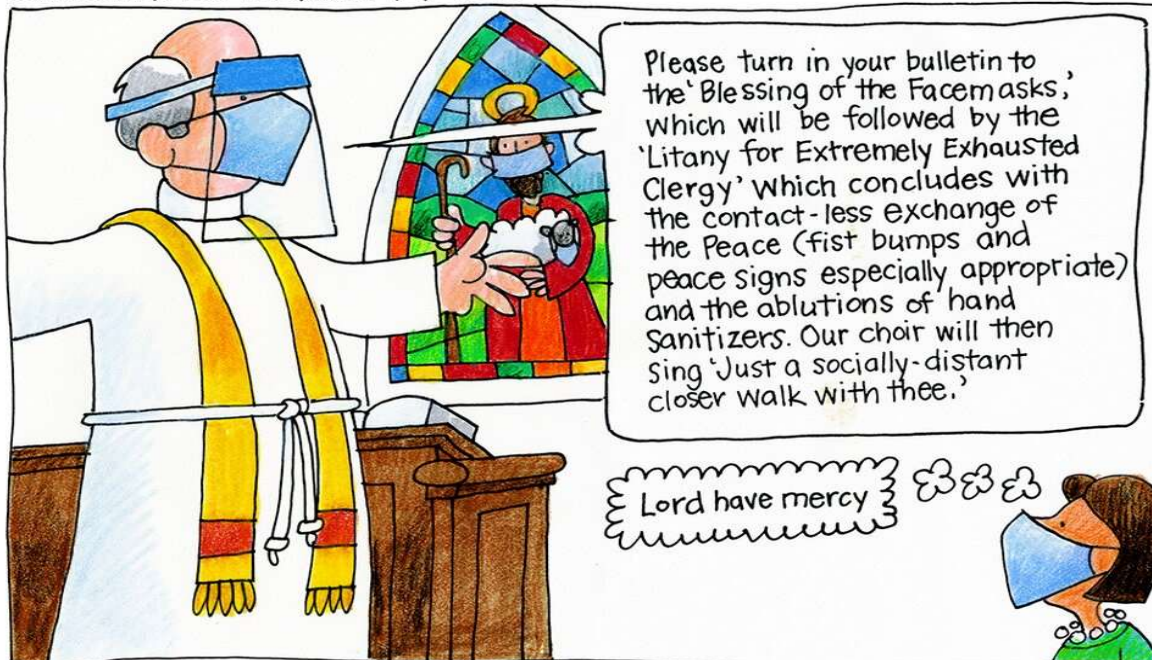 Please turn in your bulletin to
the 'Blessing of the Facemasks,'
which will be followed by the
'Litany for Extremely Exhausted
Clergy' which concludes with
the contact-less exchange of
the Peace (fist bumps and
peace signs especially appropriate)
and the ablutions of hand
Sanitizers. Our choir will then
sing 'Just a socially-distant
closer walk with thee.'
Lord have mercy